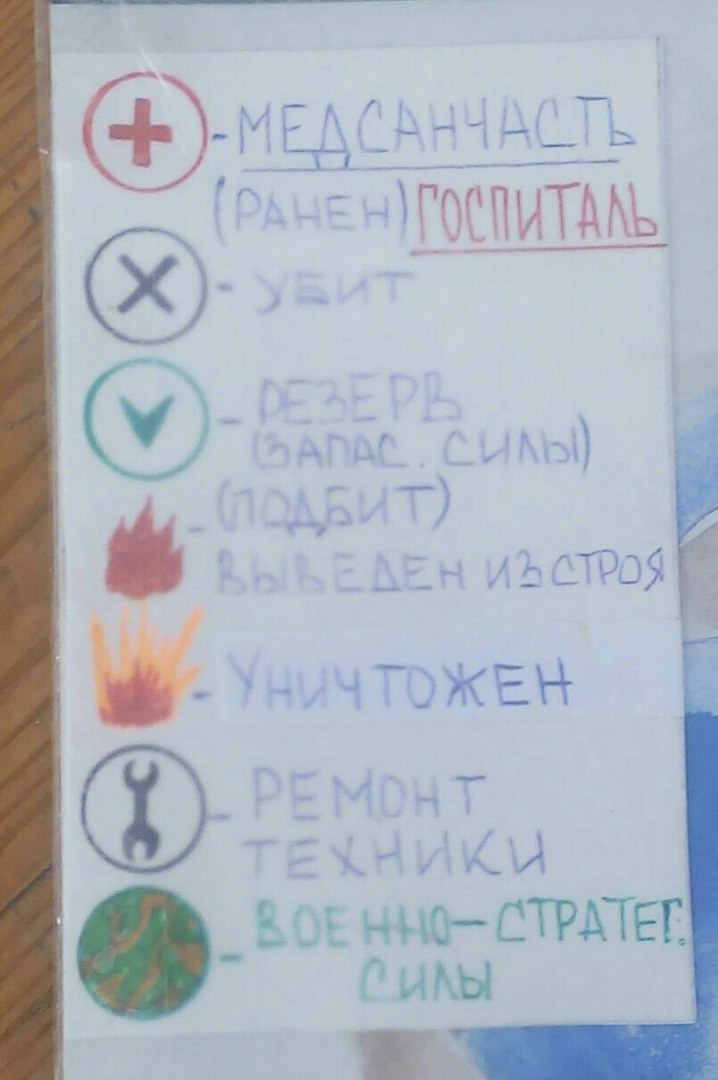 - МЕДСАНЧАСТЬ
(РАНЕН) ГОСПИТАЛЬ
- УБИТ
- РЕЗЕРВ
(ЗАПАС. СИЛЫ)
- (ПОДБИТ)
ВЫВЕДЕН ИЗ СТРОЯ
- УНИЧТОЖЕН
- РЕМОНТ
ТЕХНИКИ
- ВОЕННО-СТРАТЕГ.
СИЛЫ